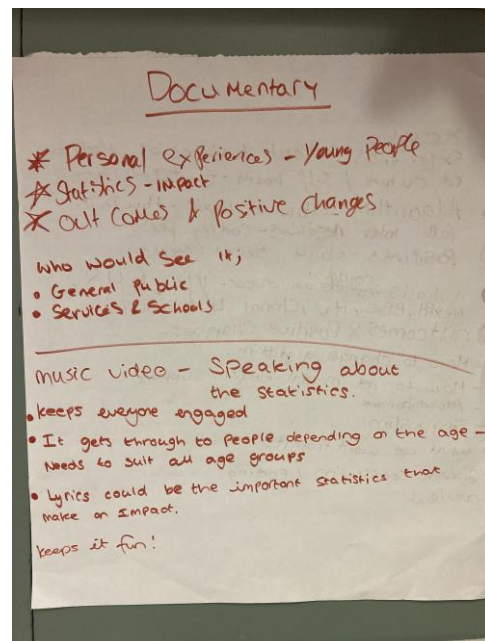 Documentary
* Personal experiences - Young People
* Statistics - impact
* Out Comes & Positive Changes
who would see it;
• General public
• Services & Schools
music video - Speaking about
the statistics.
• keeps everyone engaged
• It gets through to people depending on the age -
Needs to suit all age groups
• Lyrics could be the important statistics that
make an Impact.
keeps it fun!